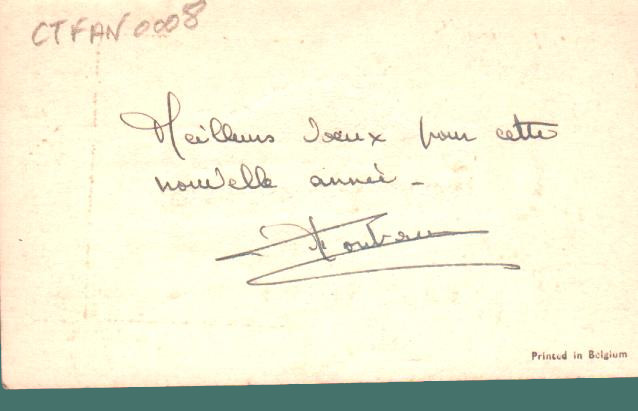 CTFAN0008
Meilleurs voeux pour cette
nouvelle année -
Printed in Belgium